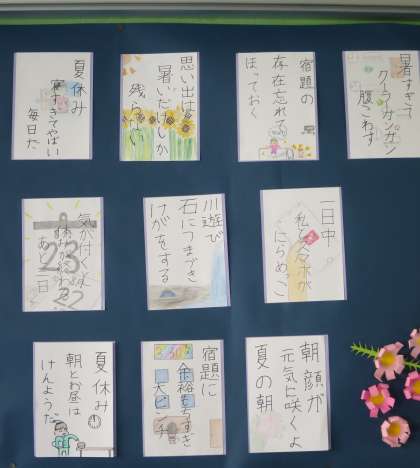 暑すぎて
クーラーガンガン
腹こわす
宿題の
存在忘れて
ほっておく
思い出は
暑いだけしか
残らない
夏休み
寝すぎてやばい
毎日だ
一日中
私とスマホが
にらめっこ
川遊び
石につまづき
けがをする
気が付くよ
休みが終わる
あと一日
23
22
朝顔が
元気に咲くよ
夏の朝
宿題に
余裕もちすぎ
大ピンチ
夏休み
朝とお昼は
けんようだ